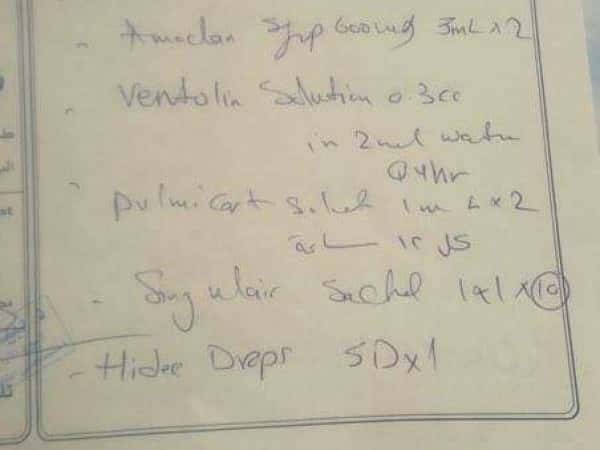 - Amoclan Syrp 600mg 3mL x 2
Ventolin Solution 0.3cc
in 2ml water
Q4hr
pulmicort 1mL x 2
- Singulair Sachet 1x1 x 10
- Hidee Drops 5Dx1